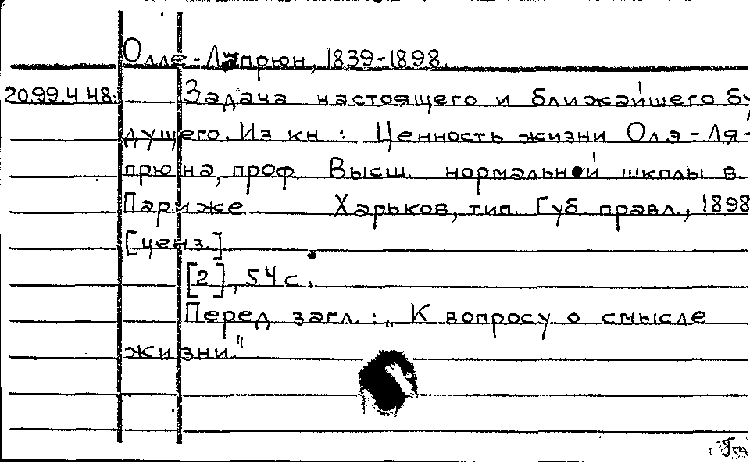 Олле-Лапрюн, 1839-1898.
20.99.4.48. Задача настоящего и ближайшего бу
дущего. Из кн: Ценность жизни Оля-Ля-
прюна, проф. Высш. нормальной школы в
Париже Харьков, тип. Губ. правл., 1898
[ценз.]
[2], 54 с.
Перед загл.: „К вопросу о смысле
жизни."